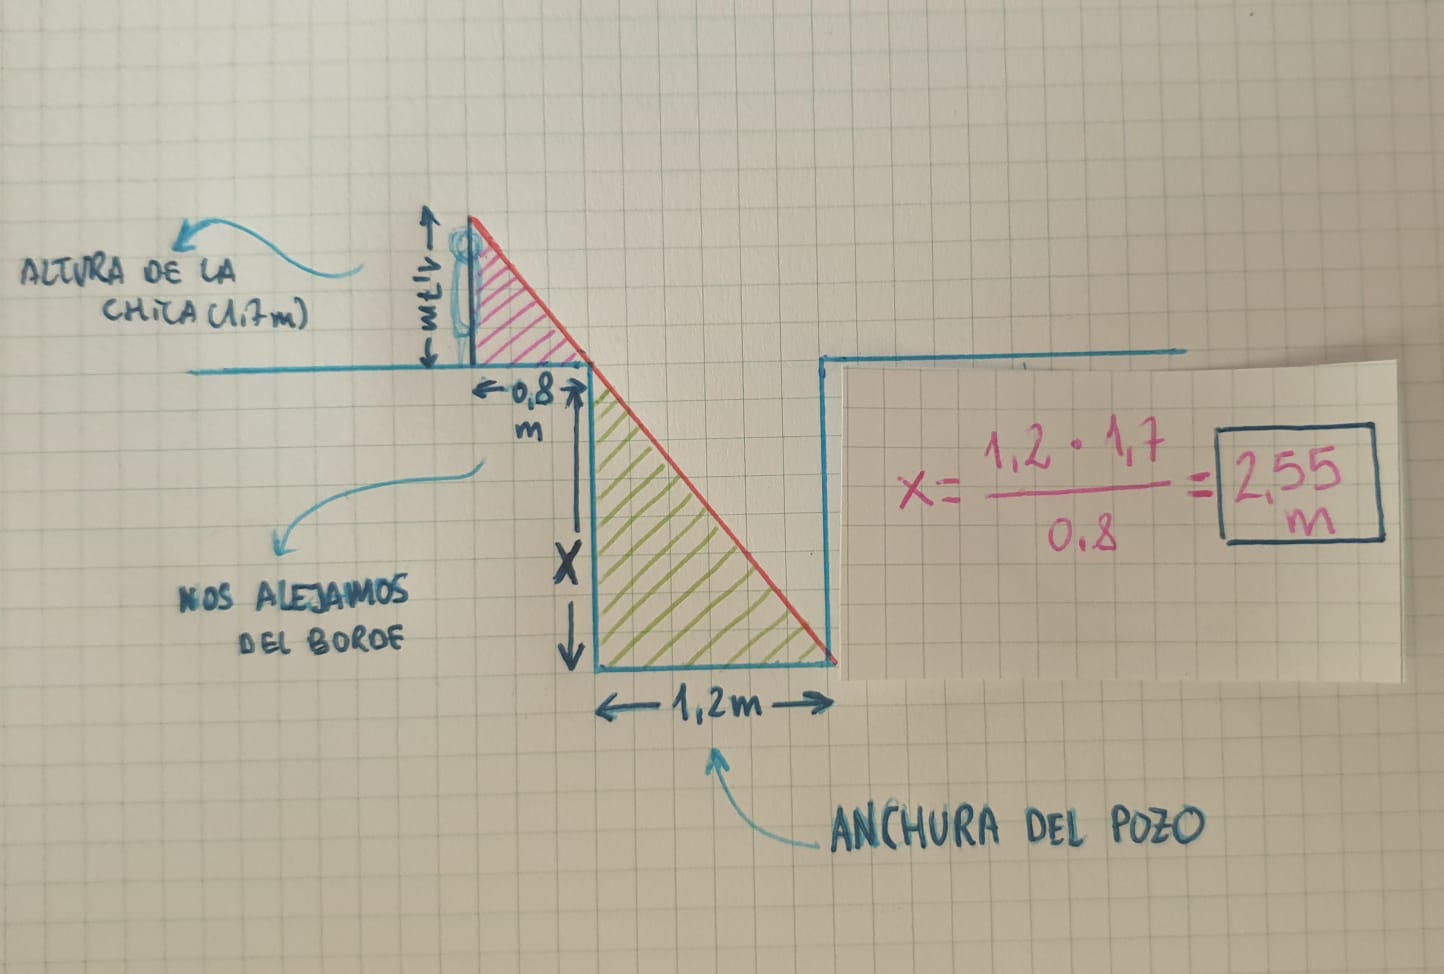 ALTURA DE LA
CHICA (1.7m)
1,7m
0,8
m
X
NOS ALEJAMOS
DEL BORDE
1,2m
ANCHURA DEL POZO
x = 1,2 · 1,7 / 0.8 = 2,55 m